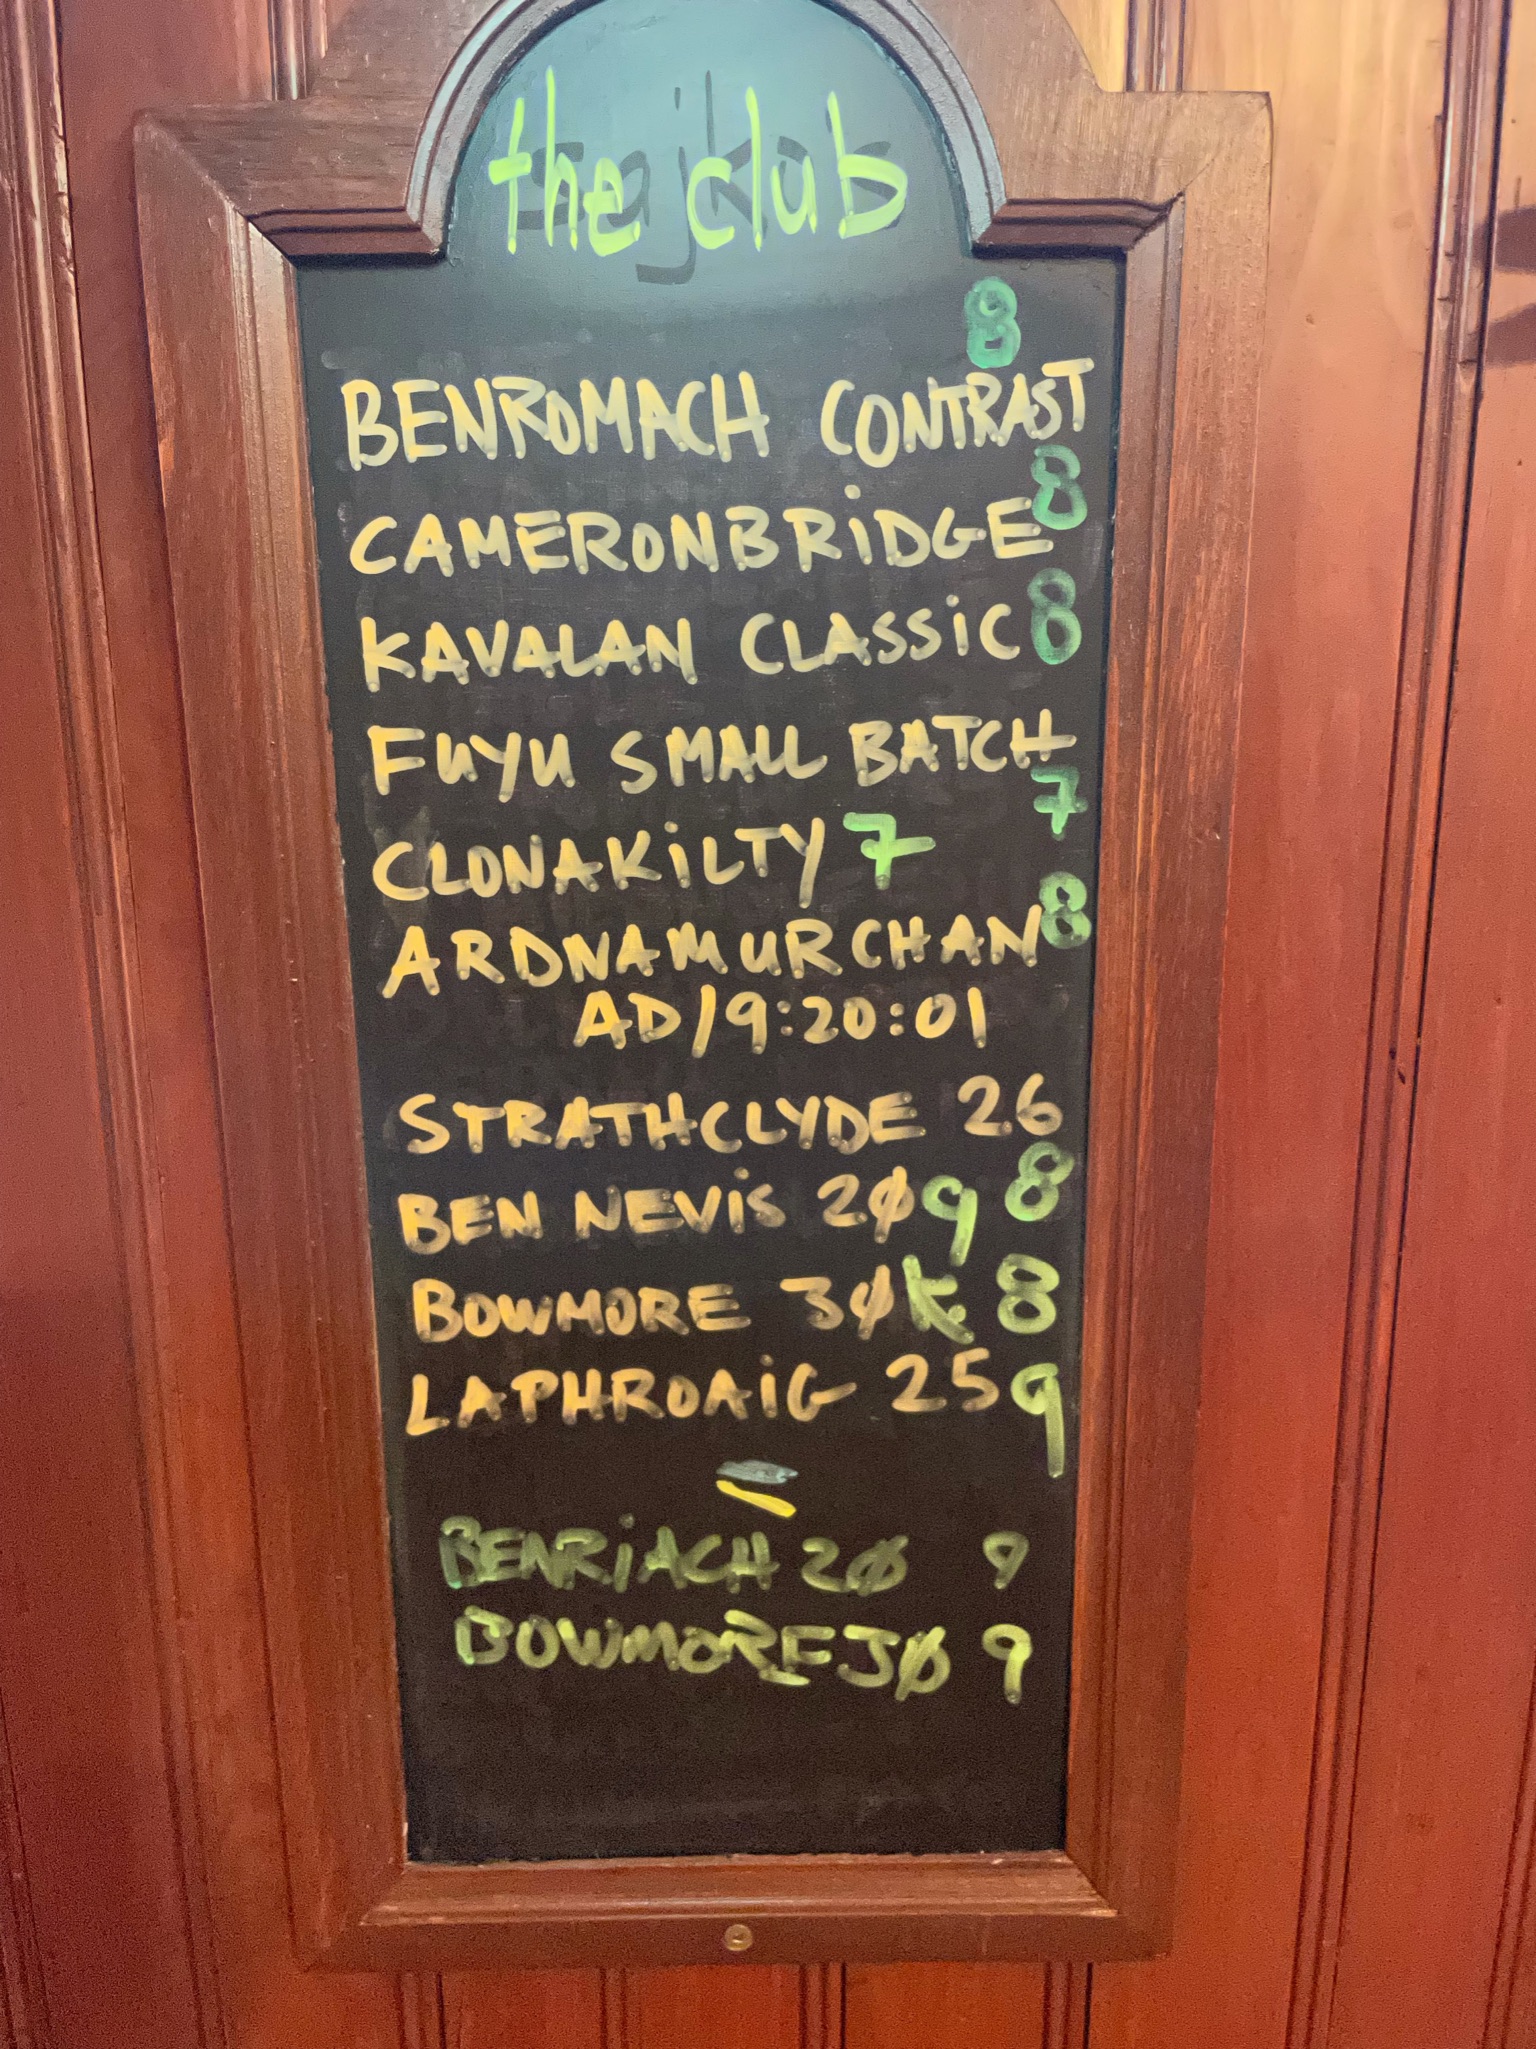 the club
8
BENROMACH CONTRAST
CAMERONBRiDGE 8
KAVALAN CLASSiC 8
FUYU SMALL BATCH
7
CLONAKiLTY 7
ARDNAMURCHAN 8
AD/9:20:01
STRATHCLYDE 26
8
BEN NEViS 20 9
BOWMORE 30 8
LAPHROAiG 25 9
BENRiACH 20 9
BOWMORE 30 9